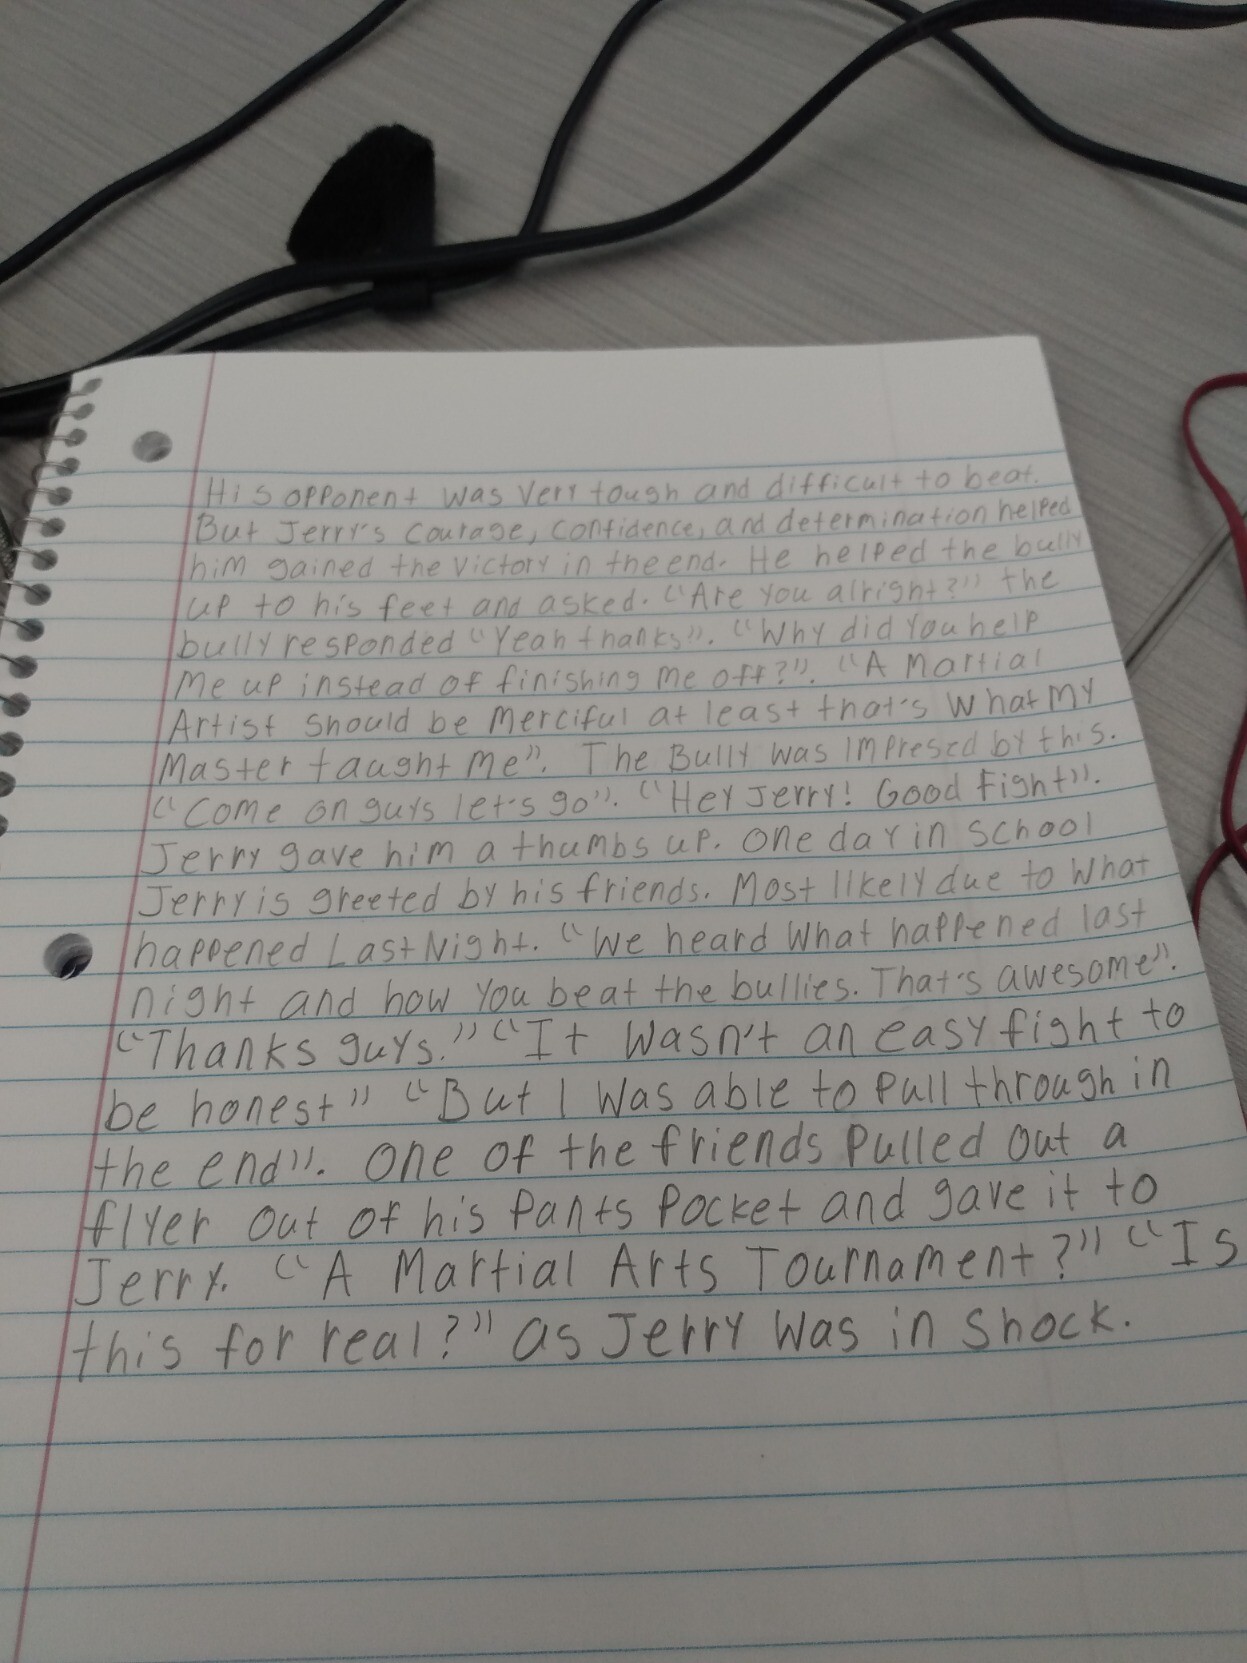 His opponent was very tough and difficult to beat.
But Jerry's courage, confidence, and determination helped
him gained the victory in the end. He helped the bully
up to his feet and asked. "Are you alright?" the
bully responded "Yeah thanks". "Why did you help
me up instead of finishing me off?". "A Martial
Artist should be merciful at least that's what my
Master taught me". The Bully was impresed by this.
"Come on guys let's go". "Hey Jerry! Good Fight".
Jerry gave him a thumbs up. One day in school
Jerry is greeted by his friends. Most likely due to what
happened Last Night. "We heard what happened last
night and how you beat the bullies. That's awesome".
"Thanks guys." "It wasn't an easy fight to
be honest" "But I was able to pull through in
the end". One of the friends pulled out a
flyer out of his pants pocket and gave it to
Jerry. "A Martial Arts Tournament?" "Is
this for real?" as Jerry was in shock.